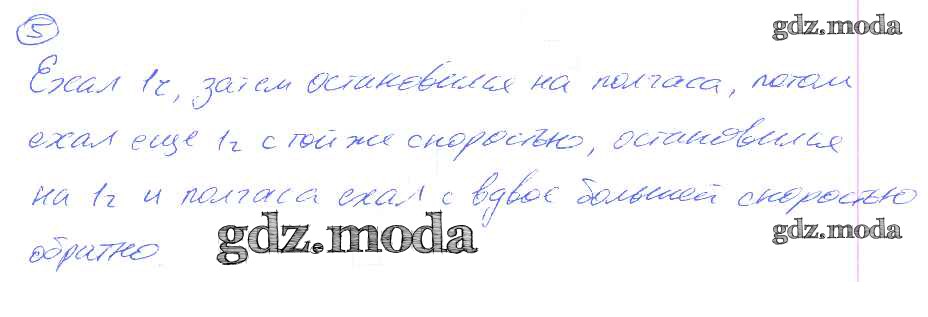 5
gdz.moda
Ехал 1ч, затем остановился на полчаса, потом
ехал еще 1ч с той же скоростью, остановился
на 1ч и полчаса ехал с вдвое большей скоростью
gdz.moda
gdz.moda
обратно